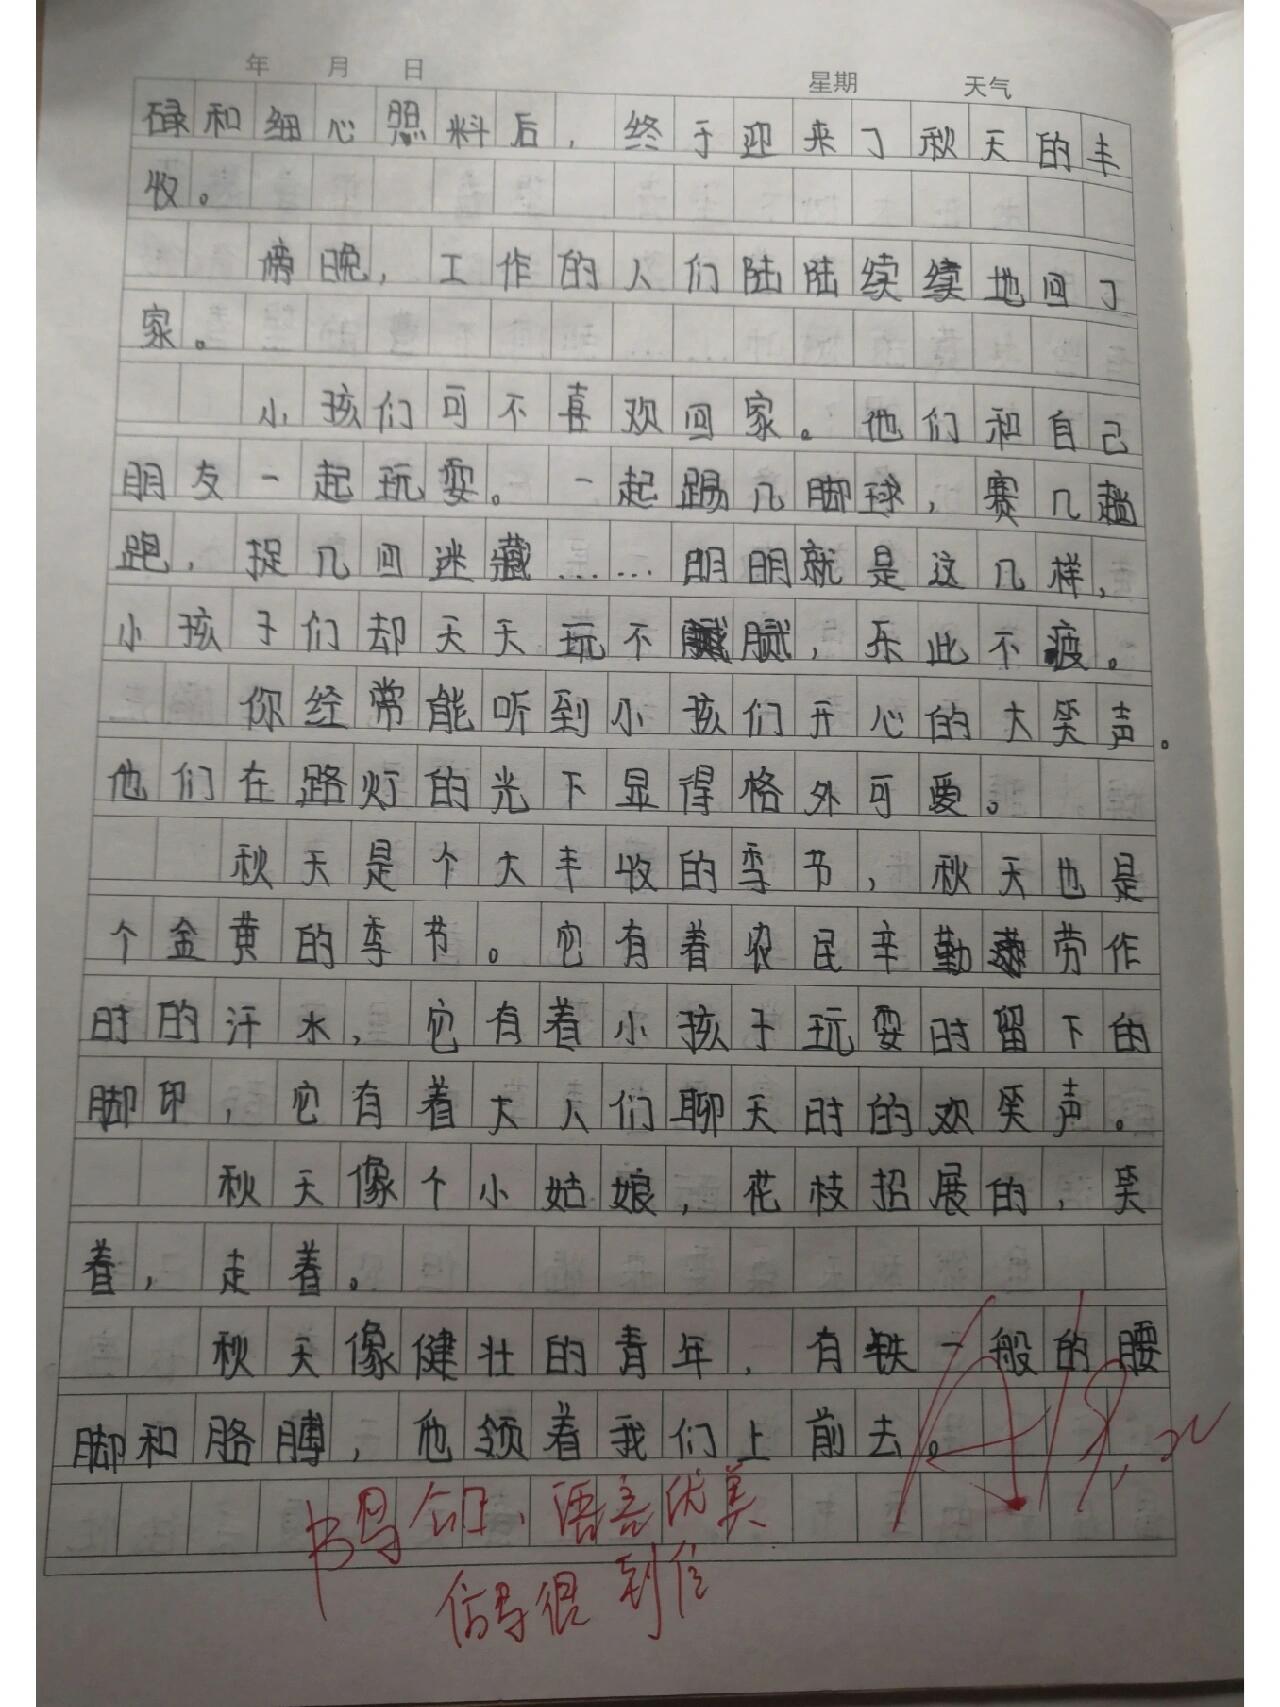 年 月 日 星期 天气
碌和细心照料后，终于迎来了秋天的丰
收。
傍晚，工作的人们陆陆续续地回了
家。
小孩们可不喜欢回家。他们和自己
朋友一起玩耍。一起踢几脚球，赛几趟
跑，捉几回迷藏……明明就是这几样，
小孩子们却天天玩不腻，乐此不疲。
你经常能听到小孩们开心的大笑声。
他们在路灯的光下显得格外可爱。
秋天是个大丰收的季节，秋天也是
个金黄的季节。它有着农民辛勤劳作
时的汗水，它有着小孩子玩耍时留下的
脚印，它有着大人们聊天时的欢笑声。
秋天像个小姑娘，花枝招展的，笑
着，走着。
秋天像健壮的青年，有铁一般的腰
脚和胳膊，他领着我们上前去。
书写工、语言优美
仿写很到位